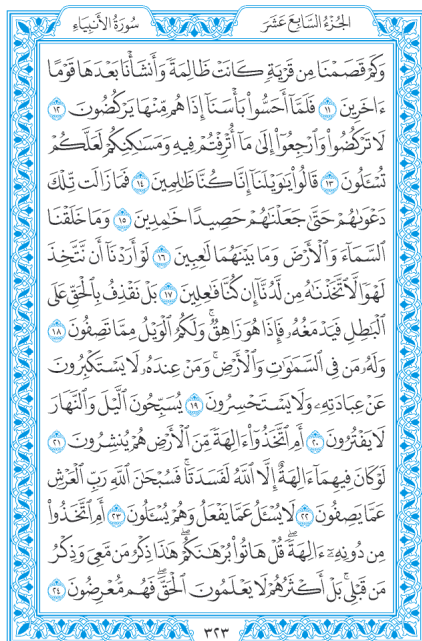 الجزء السابع عشر سورة الأنبياء
وَكَمْ قَصَمْنَا مِن قَرْيَةٍ كَانَتْ ظَالِمَةً وَأَنشَأْنَا بَعْدَهَا قَوْمًا
ءَاخَرِينَ ١١ فَلَمَّآ أَحَسُّوا۟ بَأْسَنَآ إِذَا هُم مِّنْهَا يَرْكُضُونَ ١٢
لَا تَرْكُضُوا۟ وَٱرْجِعُوٓا۟ إِلَىٰ مَآ أُتْرِفْتُمْ فِيهِ وَمَسَـٰكِنِكُمْ لَعَلَّكُمْ
تُسْـَٔلُونَ ١٣ قَالُوا۟ يَـٰوَيْلَنَآ إِنَّا كُنَّا ظَـٰلِمِينَ ١٤ فَمَا زَالَت تِّلْكَ
دَعْوَىٰهُمْ حَتَّىٰ جَعَلْنَـٰهُمْ حَصِيدًا خَـٰمِدِينَ ١٥ وَمَا خَلَقْنَا
ٱلسَّمَآءَ وَٱلْأَرْضَ وَمَا بَيْنَهُمَا لَـٰعِبِينَ ١٦ لَوْ أَرَدْنَآ أَن نَّتَّخِذَ
لَهْوًا لَّٱتَّخَذْنَـٰهُ مِن لَّدُنَّآ إِن كُنَّا فَـٰعِلِينَ ١٧ بَلْ نَقْذِفُ بِٱلْحَقِّ عَلَى
ٱلْبَـٰطِلِ فَيَدْمَغُهُۥ فَإِذَا هُوَ زَاهِقٌ ۚ وَلَكُمُ ٱلْوَيْلُ مِمَّا تَصِفُونَ ١٨
وَلَهُۥ مَن فِى ٱلسَّمَـٰوَٰتِ وَٱلْأَرْضِ ۚ وَمَنْ عِندَهُۥ لَا يَسْتَكْبِرُونَ
عَنْ عِبَادَتِهِۦ وَلَا يَسْتَحْسِرُونَ ١٩ يُسَبِّحُونَ ٱلَّيْلَ وَٱلنَّهَارَ
لَا يَفْتُرُونَ ٢٠ أَمِ ٱتَّخَذُوٓا۟ ءَالِهَةً مِّنَ ٱلْأَرْضِ هُمْ يُنشِرُونَ ٢١
لَوْ كَانَ فِيهِمَآ ءَالِهَةٌ إِلَّا ٱللَّهُ لَفَسَدَتَا ۚ فَسُبْحَـٰنَ ٱللَّهِ رَبِّ ٱلْعَرْشِ
عَمَّا يَصِفُونَ ٢٢ لَا يُسْـَٔلُ عَمَّا يَفْعَلُ وَهُمْ يُسْـَٔلُونَ ٢٣ أَمِ ٱتَّخَذُوا۟
مِن دُونِهِۦٓ ءَالِهَةً ۖ قُلْ هَاتُوا۟ بُرْهَـٰنَكُمْ ۖ هَـٰذَا ذِكْرُ مَن مَّعِىَ وَذِكْرُ
مَن قَبْلِى ۗ بَلْ أَكْثَرُهُمْ لَا يَعْلَمُونَ ٱلْحَقَّ ۖ فَهُم مُّعْرِضُونَ ٢٤
٣٢٣